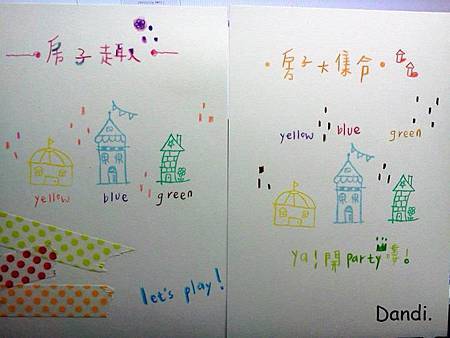 房子趣
yellow blue green
let's play!
房子大集合
yellow blue green
ya!開party嘍!
Dandi.